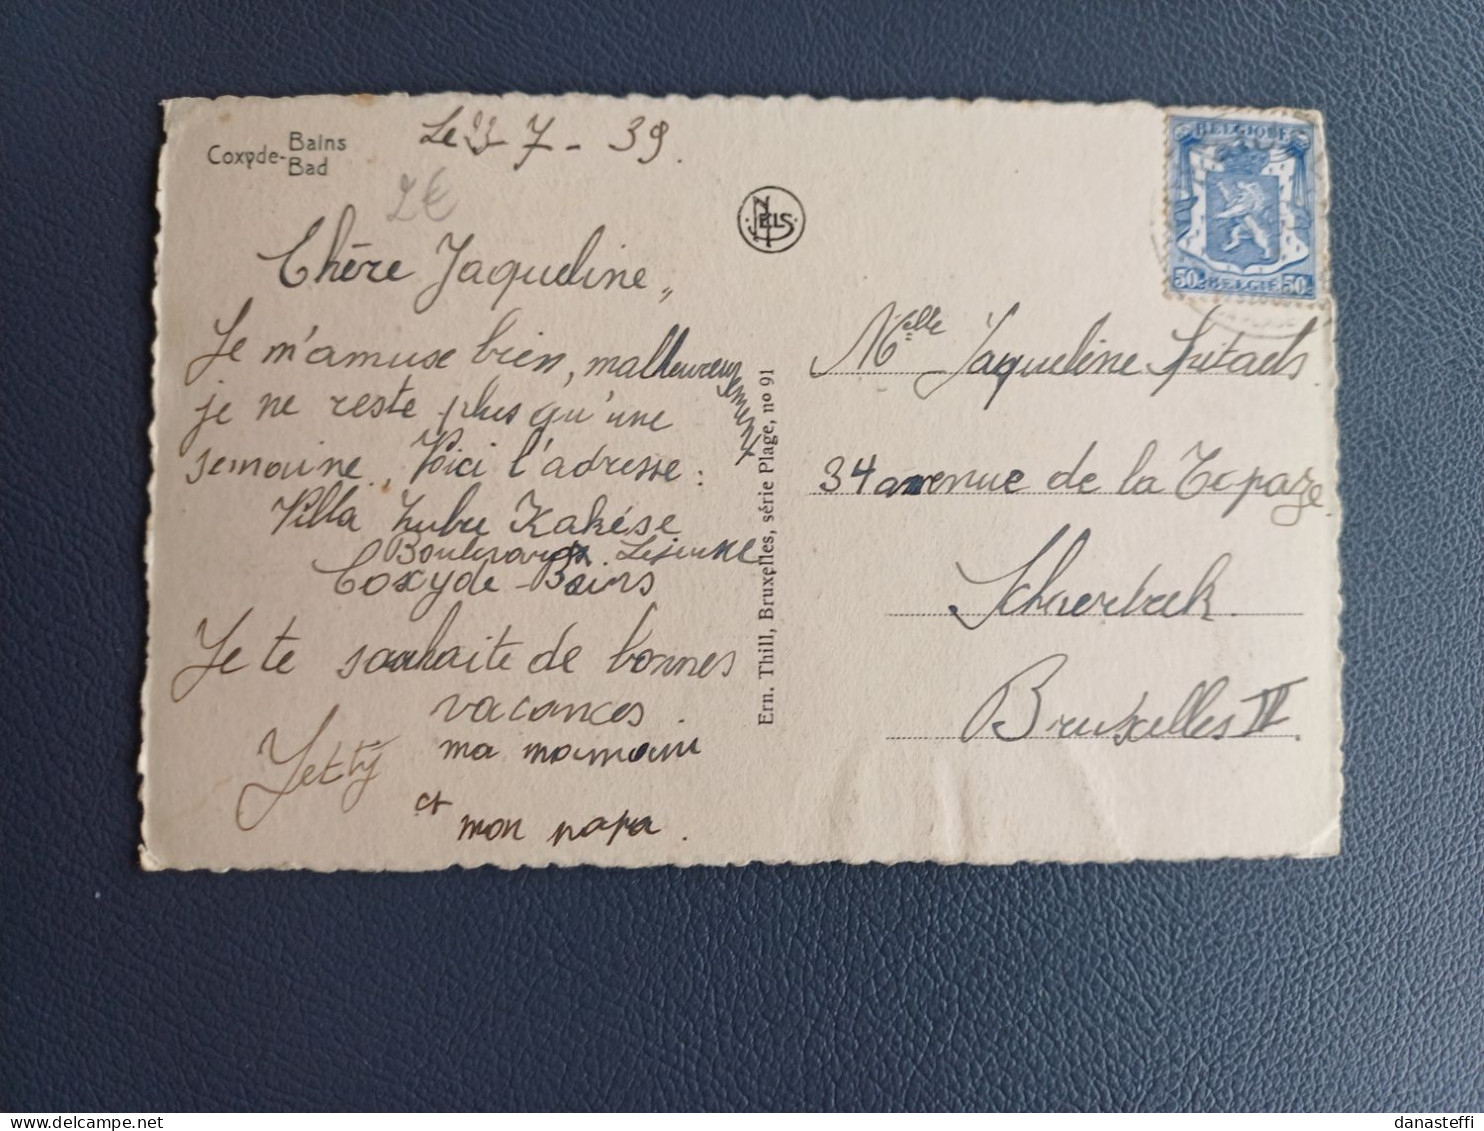 Coxyde-Bains
Bad
Le 3-7-39.
2€
Chère Jaqueline,,
Je m'amuse bien, malheureusement
je ne reste plus qu'une
semaine. Voici l'adresse :
Villa Zubu Kakése
Boulevard Lejeune
Coxyde-Bains
Je te souhaite de bonnes
vacances.
Jetty
ma maman
et
mon papa.
NELS
Ern. Thill, Bruxelles, série Plage, no 91
BELGIQUE
50c BELGIË 50c
Melle Jaqueline
34 avenue de la Topaze
Schaerbeek.
Bruxelles IV.
danasteffi